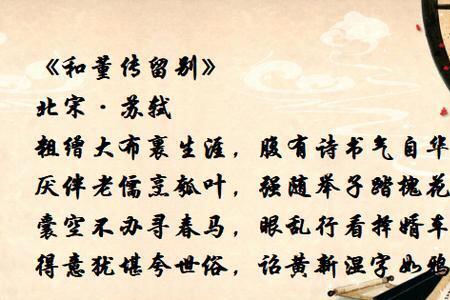 《和董传留别》
北宋·苏轼
粗缯大布裹生涯，腹有诗书气自华
厌伴老儒烹瓠叶，强随举子踏槐花
囊空不办寻春马，眼乱行看择婿车
得意犹堪夸世俗，诏黄新湿字如鸦